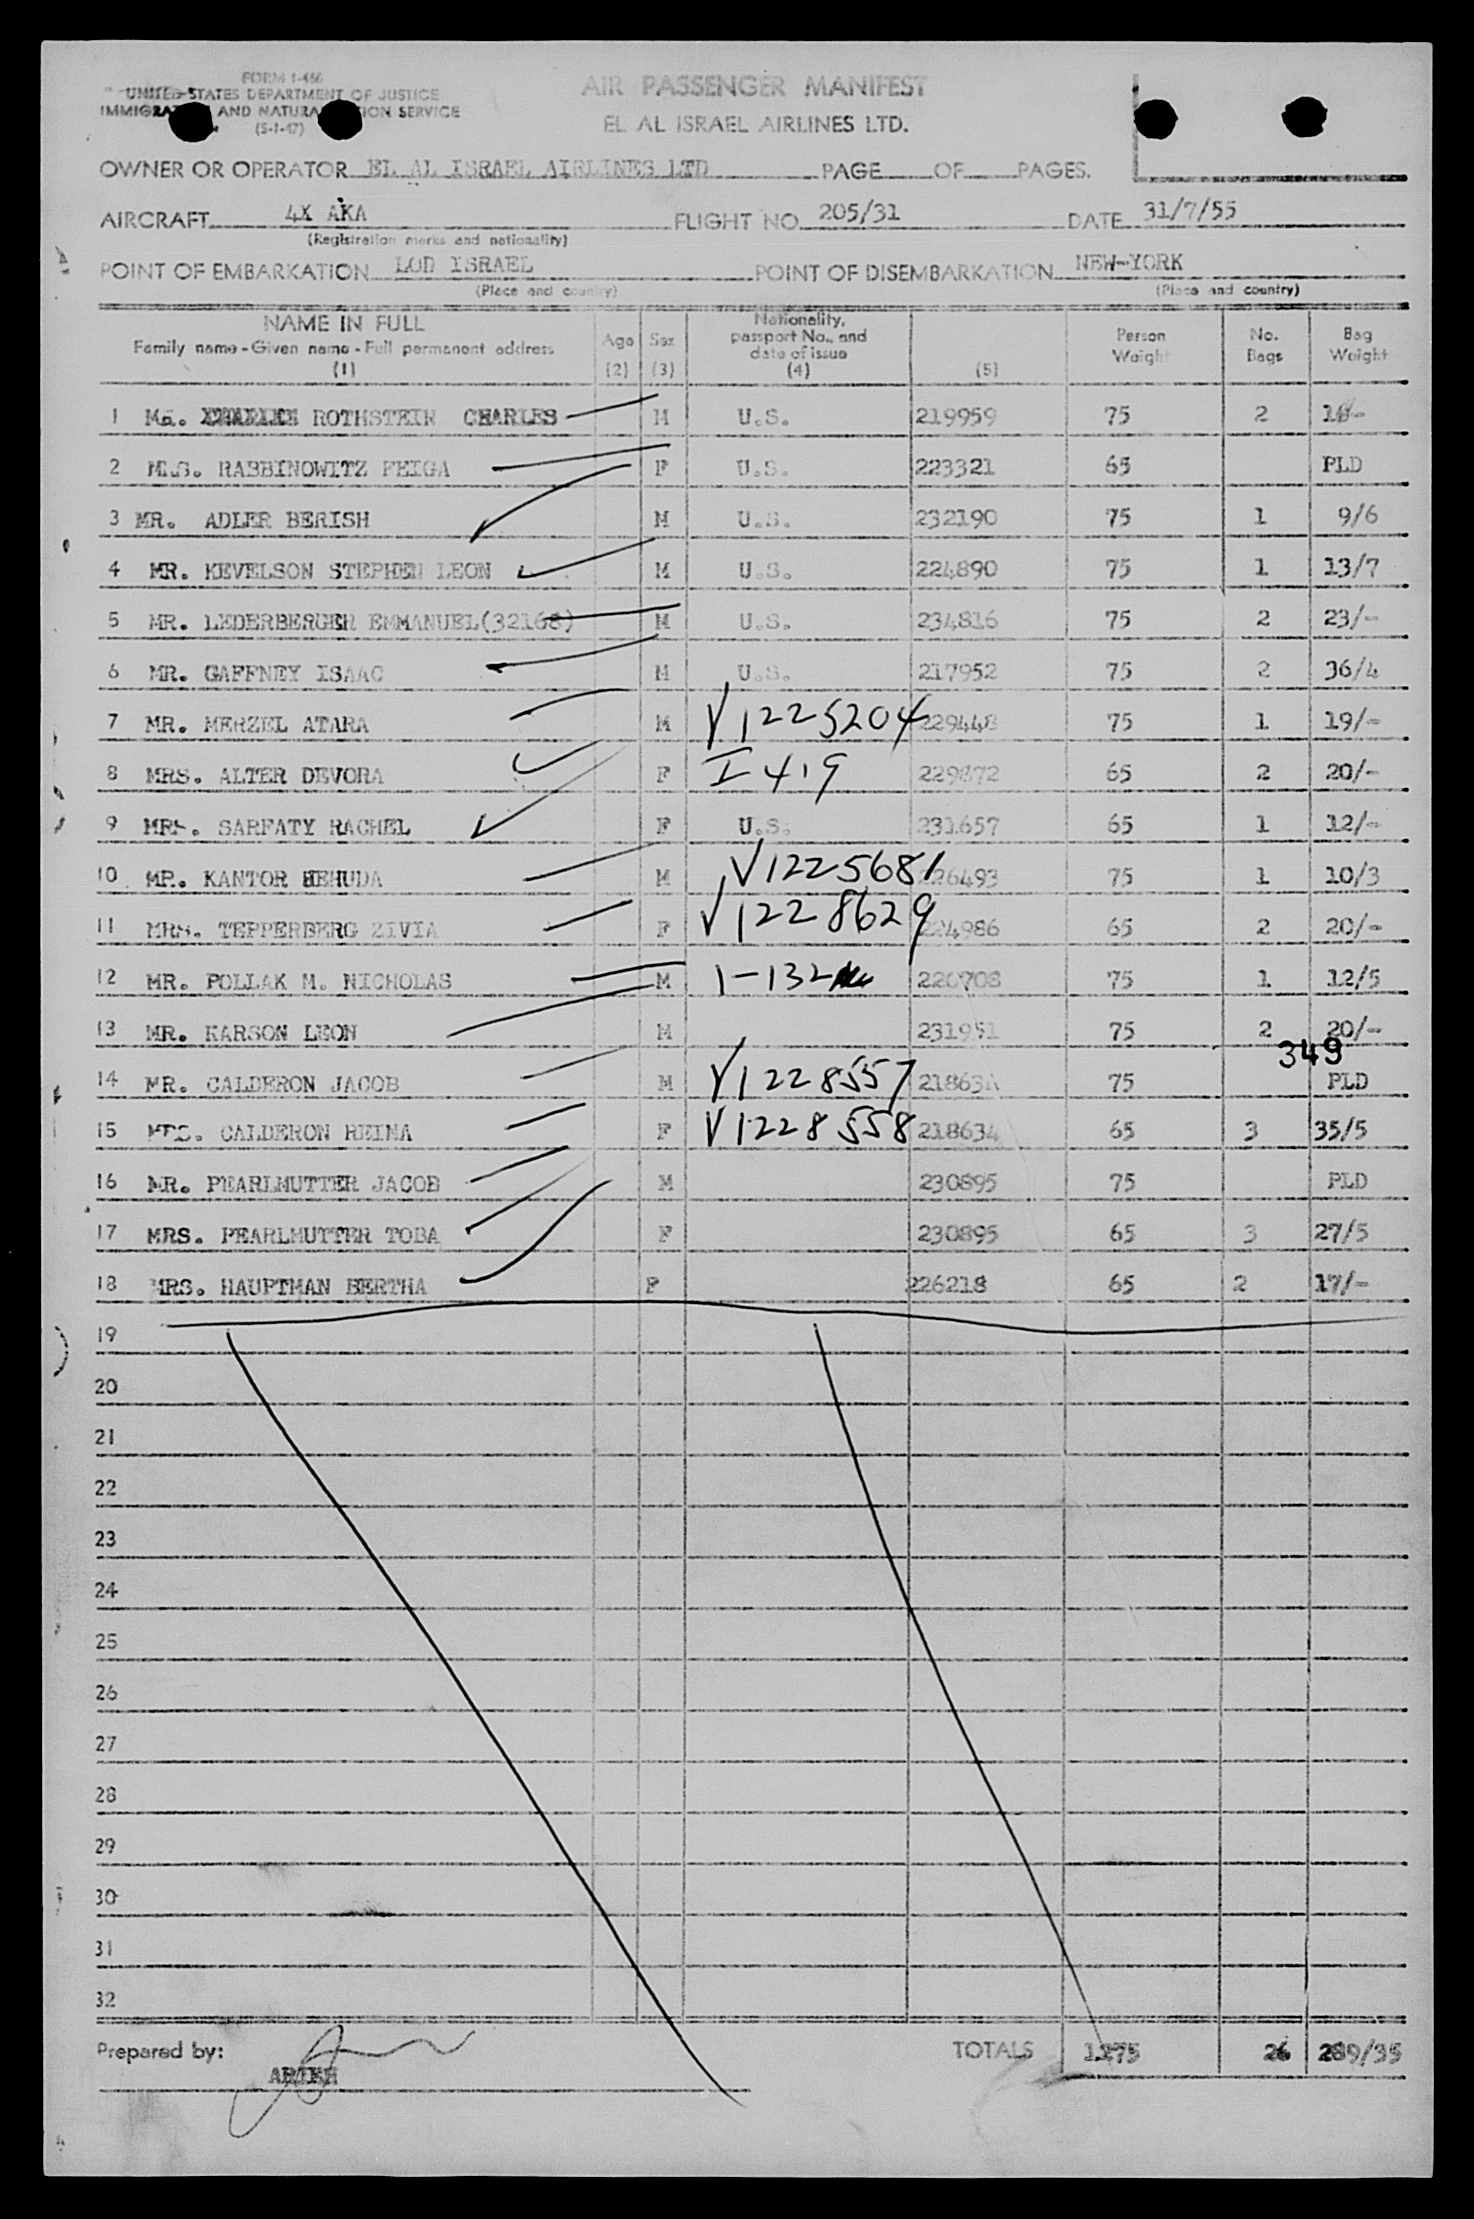 FORM I-466
UNITED STATES DEPARTMENT OF JUSTICE
AND SERVICE
(5-1-47)
AIR PASSENGER MANIFEST
EL AL ISRAEL AIRLINES LTD.
OWNER OR OPERATOR EL AL ISRAEL AIRLINES LTD PAGE OF PAGES.
AIRCRAFT 4X AKA FLIGHT NO. 205/31 DATE 31/7/55
(Registration marks and nationality)
POINT OF EMBARKATION LOD ISRAEL POINT OF DISEMBARKATION NEW-YORK
(Place and country) (Place and country)
NAME IN FULL Family name - Given name - Full permanent address (1) Age (2) Sex (3) Nationality, passport No., and date of issue (4) (5) Person Weight No. Bags Bag Weight
1 ROTHSTEIN CHARLES M U.S. 219959 75 2
2 RABBINOWITZ FEIGA F U.S. 223321 65 PLD
3 MR. ADLER BERISH M U.S. 232190 75 1 9/6
4 MR. KEVELSON STEPHEN LEON M U.S. 224890 75 1 13/7
5 MR. LEDERBERGER EMMANUEL(32168) M U.S. 234816 75 2 23/-
6 MR. GAFFNEY ISAAC M U.S. 217952 75 2 36/4
7 MR. MERZEL ATARA M V1225204 229448 75 1 19/-
8 MRS. ALTER DEVORA F I 419 229872 65 2 20/-
9 MRS. SARFATY RACHEL F U.S. 231657 65 1 12/-
10 MR. KANTOR JEHUDA M V1225681 226493 75 1 10/3
11 MRS. TEPPERBERG ZIVIA F V1228629 224986 65 2 20/-
12 MR. POLLAK M. NICHOLAS M 1-132 220708 75 1 12/5
13 MR. KARSON LEON M 231951 75 2 20/-
349
14 MR. CALDERON JACOB M V1228557 75 PLD
15 MRS. CALDERON REINA F V1228558 218634 65 3 35/5
16 MR. PEARLMUTTER JACOB M 230895 75 PLD
17 MRS. PEARLMUTTER TOBA F 230895 65 3 27/5
18 MRS. HAUPTMAN BERTHA F 226218 65 2 17/-
19
20
21
22
23
24
25
26
27
28
29
30
31
32
Prepared by: ARIEH TOTALS 1275 26 289/35